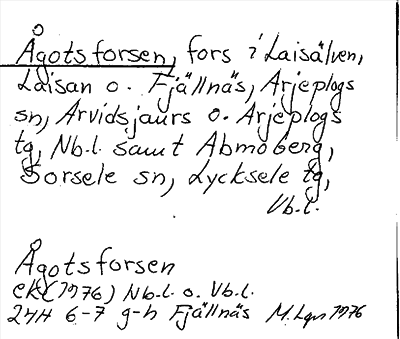 Ågotsforsen, fors i Laisälven,
Laisan o. Fjällnäs, Arjeplogs
sn, Arvidsjaurs o. Arjeplogs
tg, Nb.l. samt Abmoberg,
Sorsele sn, Lycksele tg,
Vb.l.
Ågotsforsen
ek (1976) Nb.l. o. Vb.l.
24H 6-7 g-h Fjällnäs M.Lgn 1976